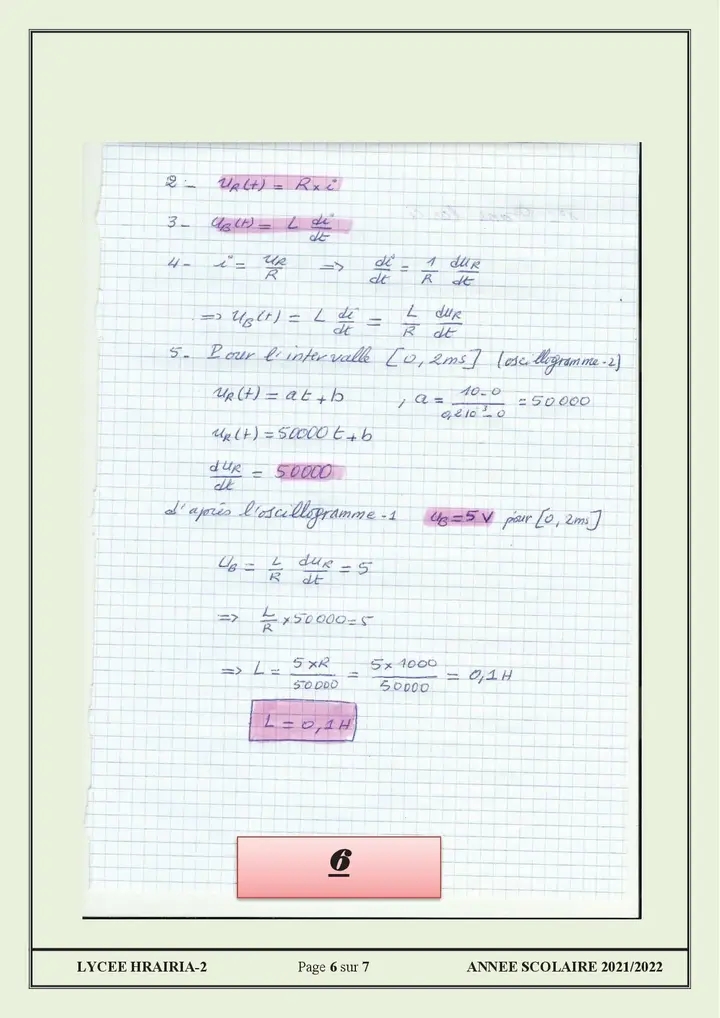 2 - uR(t) = R×i
3 - uB(t) = L di/dt
4 - i = uR/R => di/dt = 1/R duR/dt
=> uB(t) = L di/dt = L/R duR/dt
5 - Pour l'intervalle [0, 2ms] (oscillogramme-2)
uR(t) = at + b , a = 10-0/0,2 10⁻³-0 = 50000
uR(t) = 50000 t + b
duR/dt = 50000
d'après l'oscillogramme-1 uB = 5 V pour [0, 2ms]
uB = L/R duR/dt = 5
=> L/R × 50000 = 5
=> L = 5×R/50000 = 5×1000/50000 = 0,1H
L = 0,1H
6
LYCEE HRAIRIA-2 Page 6 sur 7 ANNEE SCOLAIRE 2021/2022